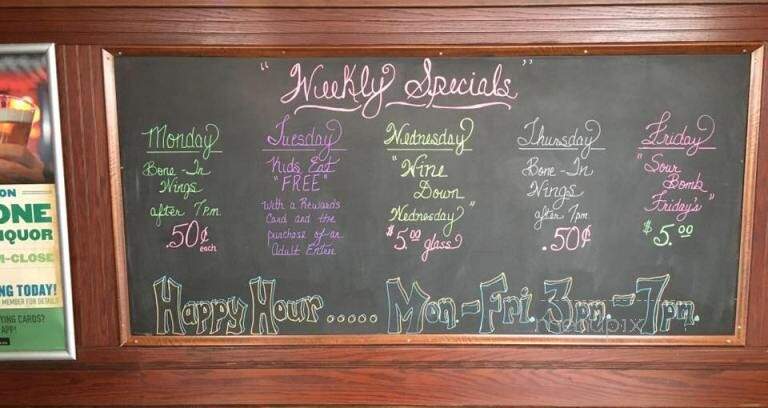 "Weekly Specials"
Monday
Bone-In
Wings
after 7pm.
.50¢
each
Tuesday
Kids Eat
"FREE"
with a Rewards
Card and the
purchase of an
Adult Entree
Wednesday
"Wine
Down
Wednesday"
$5.00 glass
Thursday
Bone-In
Wings
after 7pm
.50¢
Friday
"Sour
Bomb
Friday's"
$5.00
Happy Hour ..... Mon.-Fri. 3pm.-7pm.
ON
ONE
IQUOR
M-CLOSE
NG TODAY!
MEMBER FOR DETAILS
YING CARDS?
APP!
menupix